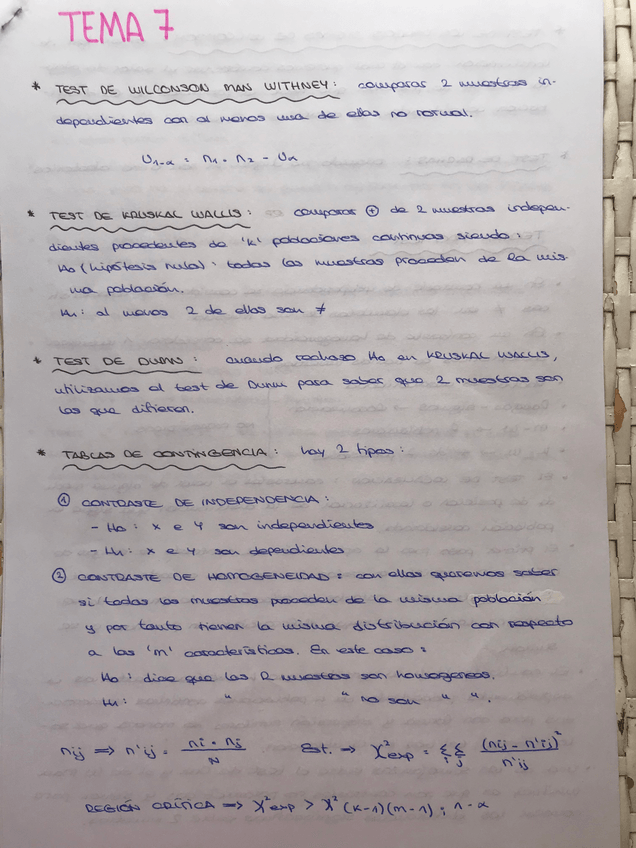 TEMA 7
* TEST DE WILCONSON MAN WITHNEY: comparar 2 muestras in-
dependientes con al menos una de ellas no normal.
U1-α = n1 · n2 - Uα
* TEST DE KRUSKAL WALLIS: comparar ⊕ de 2 muestras indepen-
dientes procedentes de 'k' poblaciones continuas siendo:
Ho (hipótesis nula): todas las muestras proceden de la mis-
ma población.
H1: al menos 2 de ellas son ≠
* TEST DE DUNN: cuando rechazo Ho en KRUSKAL WALLIS,
utilizamos el test de Dunn para saber que 2 muestras son
las que difieren.
* TABLAS DE CONTINGENCIA: hay 2 tipos:
① CONTRASTE DE INDEPENDENCIA:
- Ho: x e y son independientes
- H1: x e y son dependientes
② CONTRASTE DE HOMOGENEIDAD: con ellas queremos saber
si todas las muestras proceden de la misma población
y por tanto tienen la misma distribución con respecto
a las 'm' características. En este caso:
Ho: dice que las 2 muestras son homogéneas.
H1: " " no son " ".
nij ⇒ n'ij = ni · nj / N Est. ⇒ χ²exp = Σi Σj (nij - n'ij)² / n'ij
REGIÓN CRÍTICA ⇒ χ²exp > χ² (k-1)(m-1); 1-α